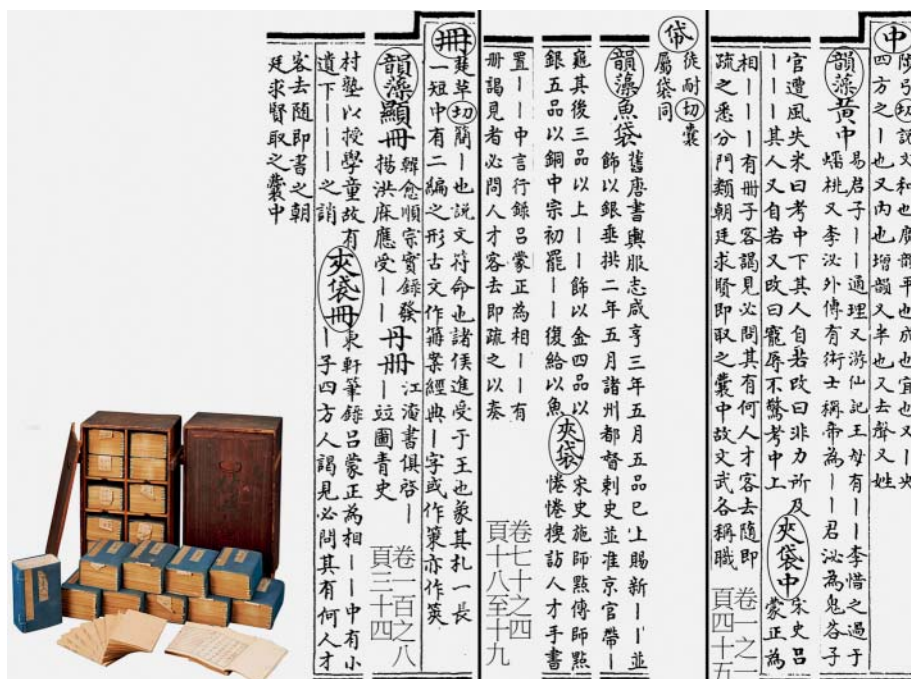 中
陟弓切說文和也廣韻平也成也宜也又｜央
四方之｜也又內也增韻又半也又去聲又姓
韻藻黃中
易君子｜｜通理又游仙記王母有｜｜李惜之過于
蟠桃又李泌外傳有術士稱帝為｜｜君泌為鬼谷子
官遭風失米曰考中下其人自若改曰非力所及
｜｜其人又自若又改曰寵辱不驚考中上
夾袋中
宋史呂
蒙正為
相｜｜｜有冊子客謁見必問其有何人才客去隨即
疏之悉分門類朝廷求賢即取之囊中故文武各稱職
卷一之一
頁四十五
帒
徒耐切囊
屬袋同
韻藻魚袋
舊唐書輿服志咸亨三年五月五品已上賜新｜｜並
飾以銀垂拱二年五月諸州都督刺史並准京官帶｜
龜其後三品以上｜｜飾以金四品以
銀五品以銅中宗初罷｜｜復給以魚
夾袋
宋史施師點傳師點
惓惓搜訪人才手書
置｜｜中言行錄呂蒙正為相｜｜有
冊謁見者必問人才客去即疏之以奏
卷七十之四
頁十八至十九
冊
楚革切簡｜也說文符命也諸侯進受于王也象其札一長
一短中有二編之形古文作案經典｜字或作筞亦作筴
韻藻顯冊
韓愈順宗實錄發
揚洪庥應受｜｜
丹冊
江淹書俱啓｜
｜竝圖青史
卷一百之八
頁三十四
村塾以授學童故有
遺下｜｜｜之誚
夾袋冊
東軒筆錄呂蒙正為相｜｜中有小
｜子四方人謁見必問其有何人才
客去隨即書之朝
廷求賢取之囊中